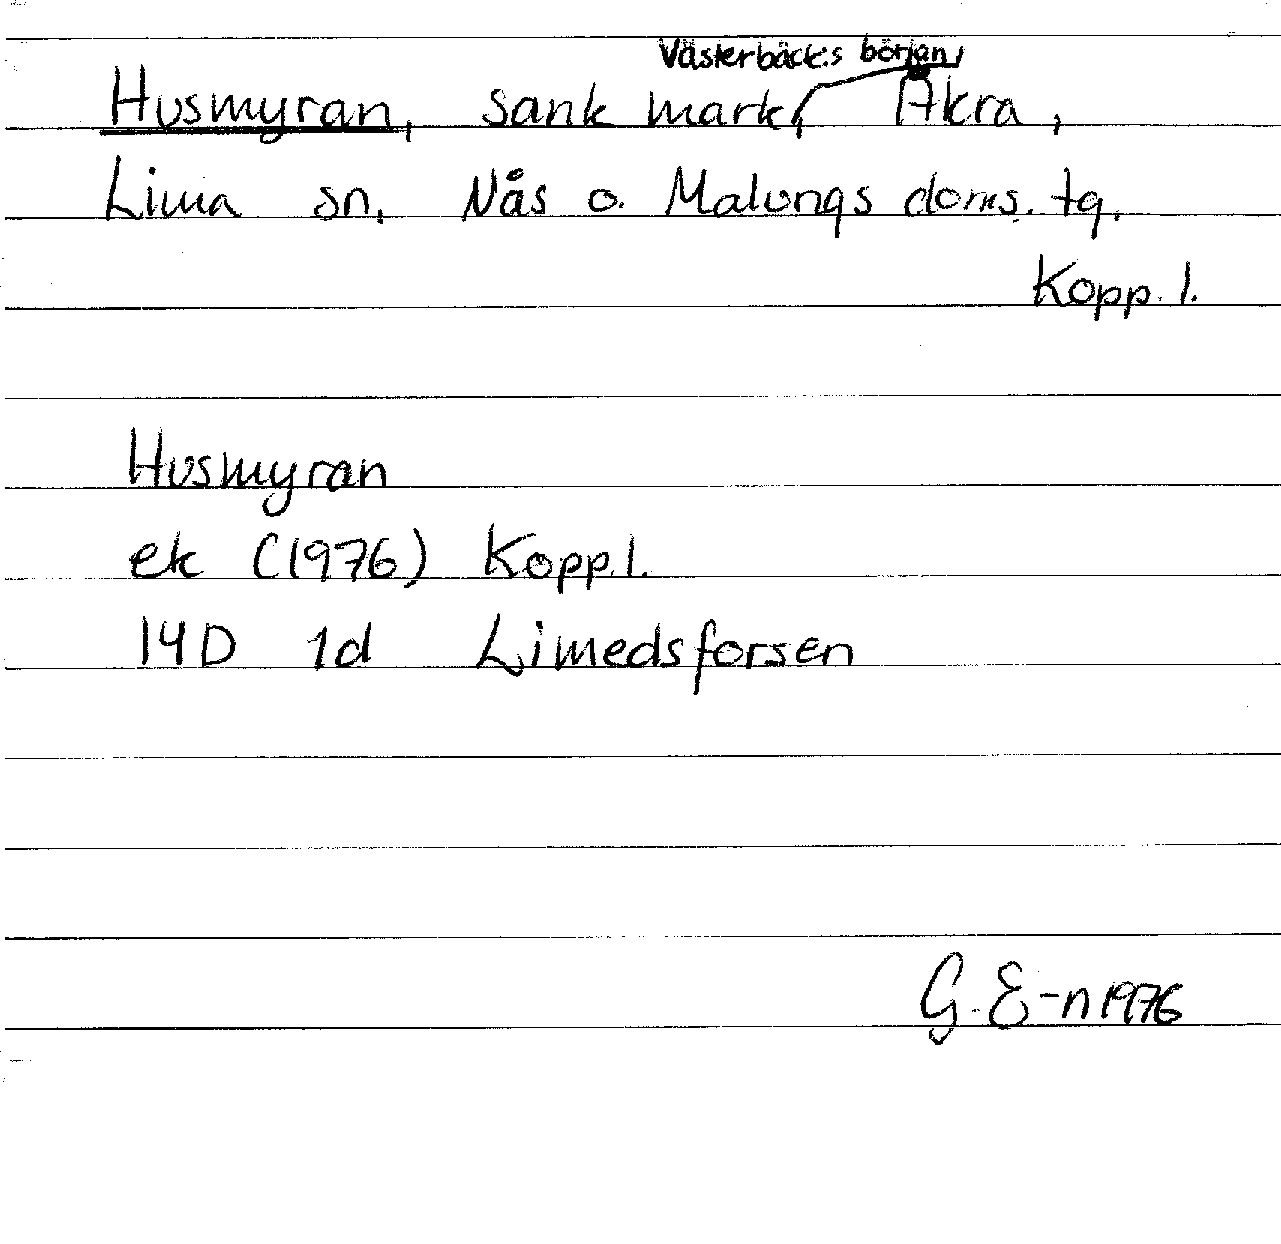 Västerbäcks början,
Husmyran, sank mark, Åkra,
Lima sn, Nås o. Malungs doms. tg.
Kopp. l.
Husmyran
ek (1976) Kopp. l.
14D 1d Limedsforsen
G. E-n 1976